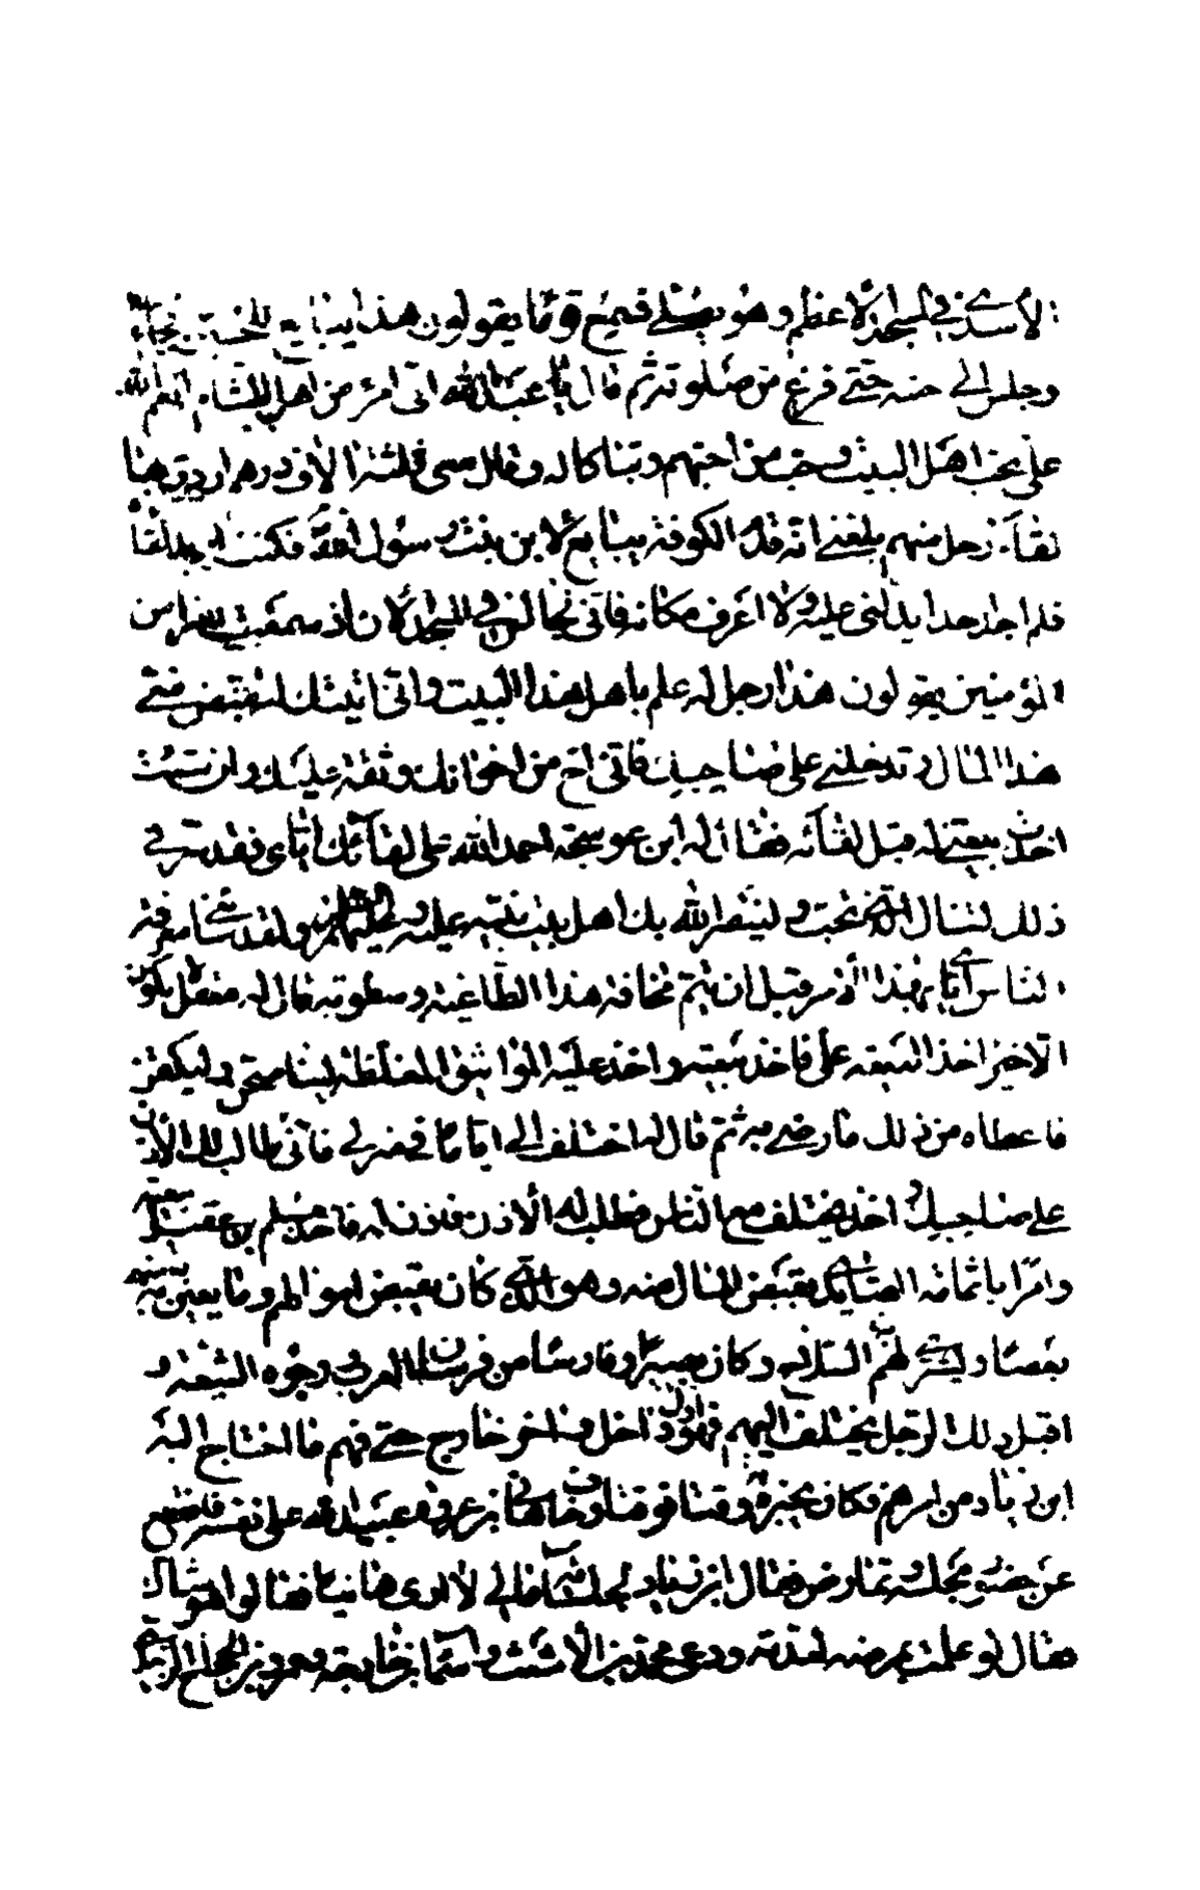 الأسدي في المسجد الأعظم وهو يصلي فسمع قوما يقولون هذا يبايع للحسين فجاء
وجلس الى جنبه حتى فرغ من صلوته ثم قال يا عبد الله اني امرء من اهل الشام انعم الله
علي بحب اهل البيت وحب من احبهم وتباكا له وقال معى ثلثة الاف درهم اردت بها
لقاء رجل منهم بلغني انه قدم الكوفة يبايع لابن بنت رسول الله فكنت اريد لقاه
فلم اجد احدا يدلنى عليه ولا اعرف مكانه فاني لجالس في المسجد الان اذ سمعت نفرا من
المؤمنين يقولون هذا رجل له علم باهل هذا البيت واني اتيتك لتقبض مني
هذا المال وتدخلني على صاحبك فاني اخ من اخوانك وثقة عليك وان شئت
اخذت بيعتي له قبل لقائه فقال له ابن عوسجة احمد الله على لقائك اياى فقد سرني
ذلك لتنال الذي تحب ولينصر الله بك اهل بيت نبيه عليه وعليهم السلام ولقد سائني معرفة
الناس اياي بهذا الامر قبل ان يتم مخافة هذا الطاغية وسطوته قال له معقل لا يكون
الا خيرا خذ البيعة علي فاخذ بيعته واخذ عليه المواثيق المغلظة ليناصحن وليكتمن
فاعطاه من ذلك ما رضي به ثم قال له اختلف الي اياما في منزلي فاني طالب لك الاذن
على صاحبك واخذ يختلف مع الناس فطلب له الاذن فاذن له فاخذ مسلم بن عقيل بيعته
وامر ابا ثمامة الصائدي بقبض المال منه وهو الذي كان يقبض اموالهم وما يعين به بعضهم
بعضا ويشتري لهم السلاح وكان بصيرا وفارسا من فرسان العرب ووجوه الشيعة و
اقبل ذلك الرجل يختلف اليهم فهو اول داخل واخر خارج حتى فهم ما احتاج اليه
ابن زياد من امرهم فكان يخبره وقتا فوقتا وخاف هاني بن عروة عبيد الله على نفسه فانقطع
عن حضور مجلسه وتمارض فقال ابن زياد لجلسائه ما لي لا ارى هانيا فقالوا هو شاك
فقال لو علمت بمرضه لعدته ودعى محمد بن الأشعث واسماء بن خارجة وعمرو بن الحجاج الزبيدي